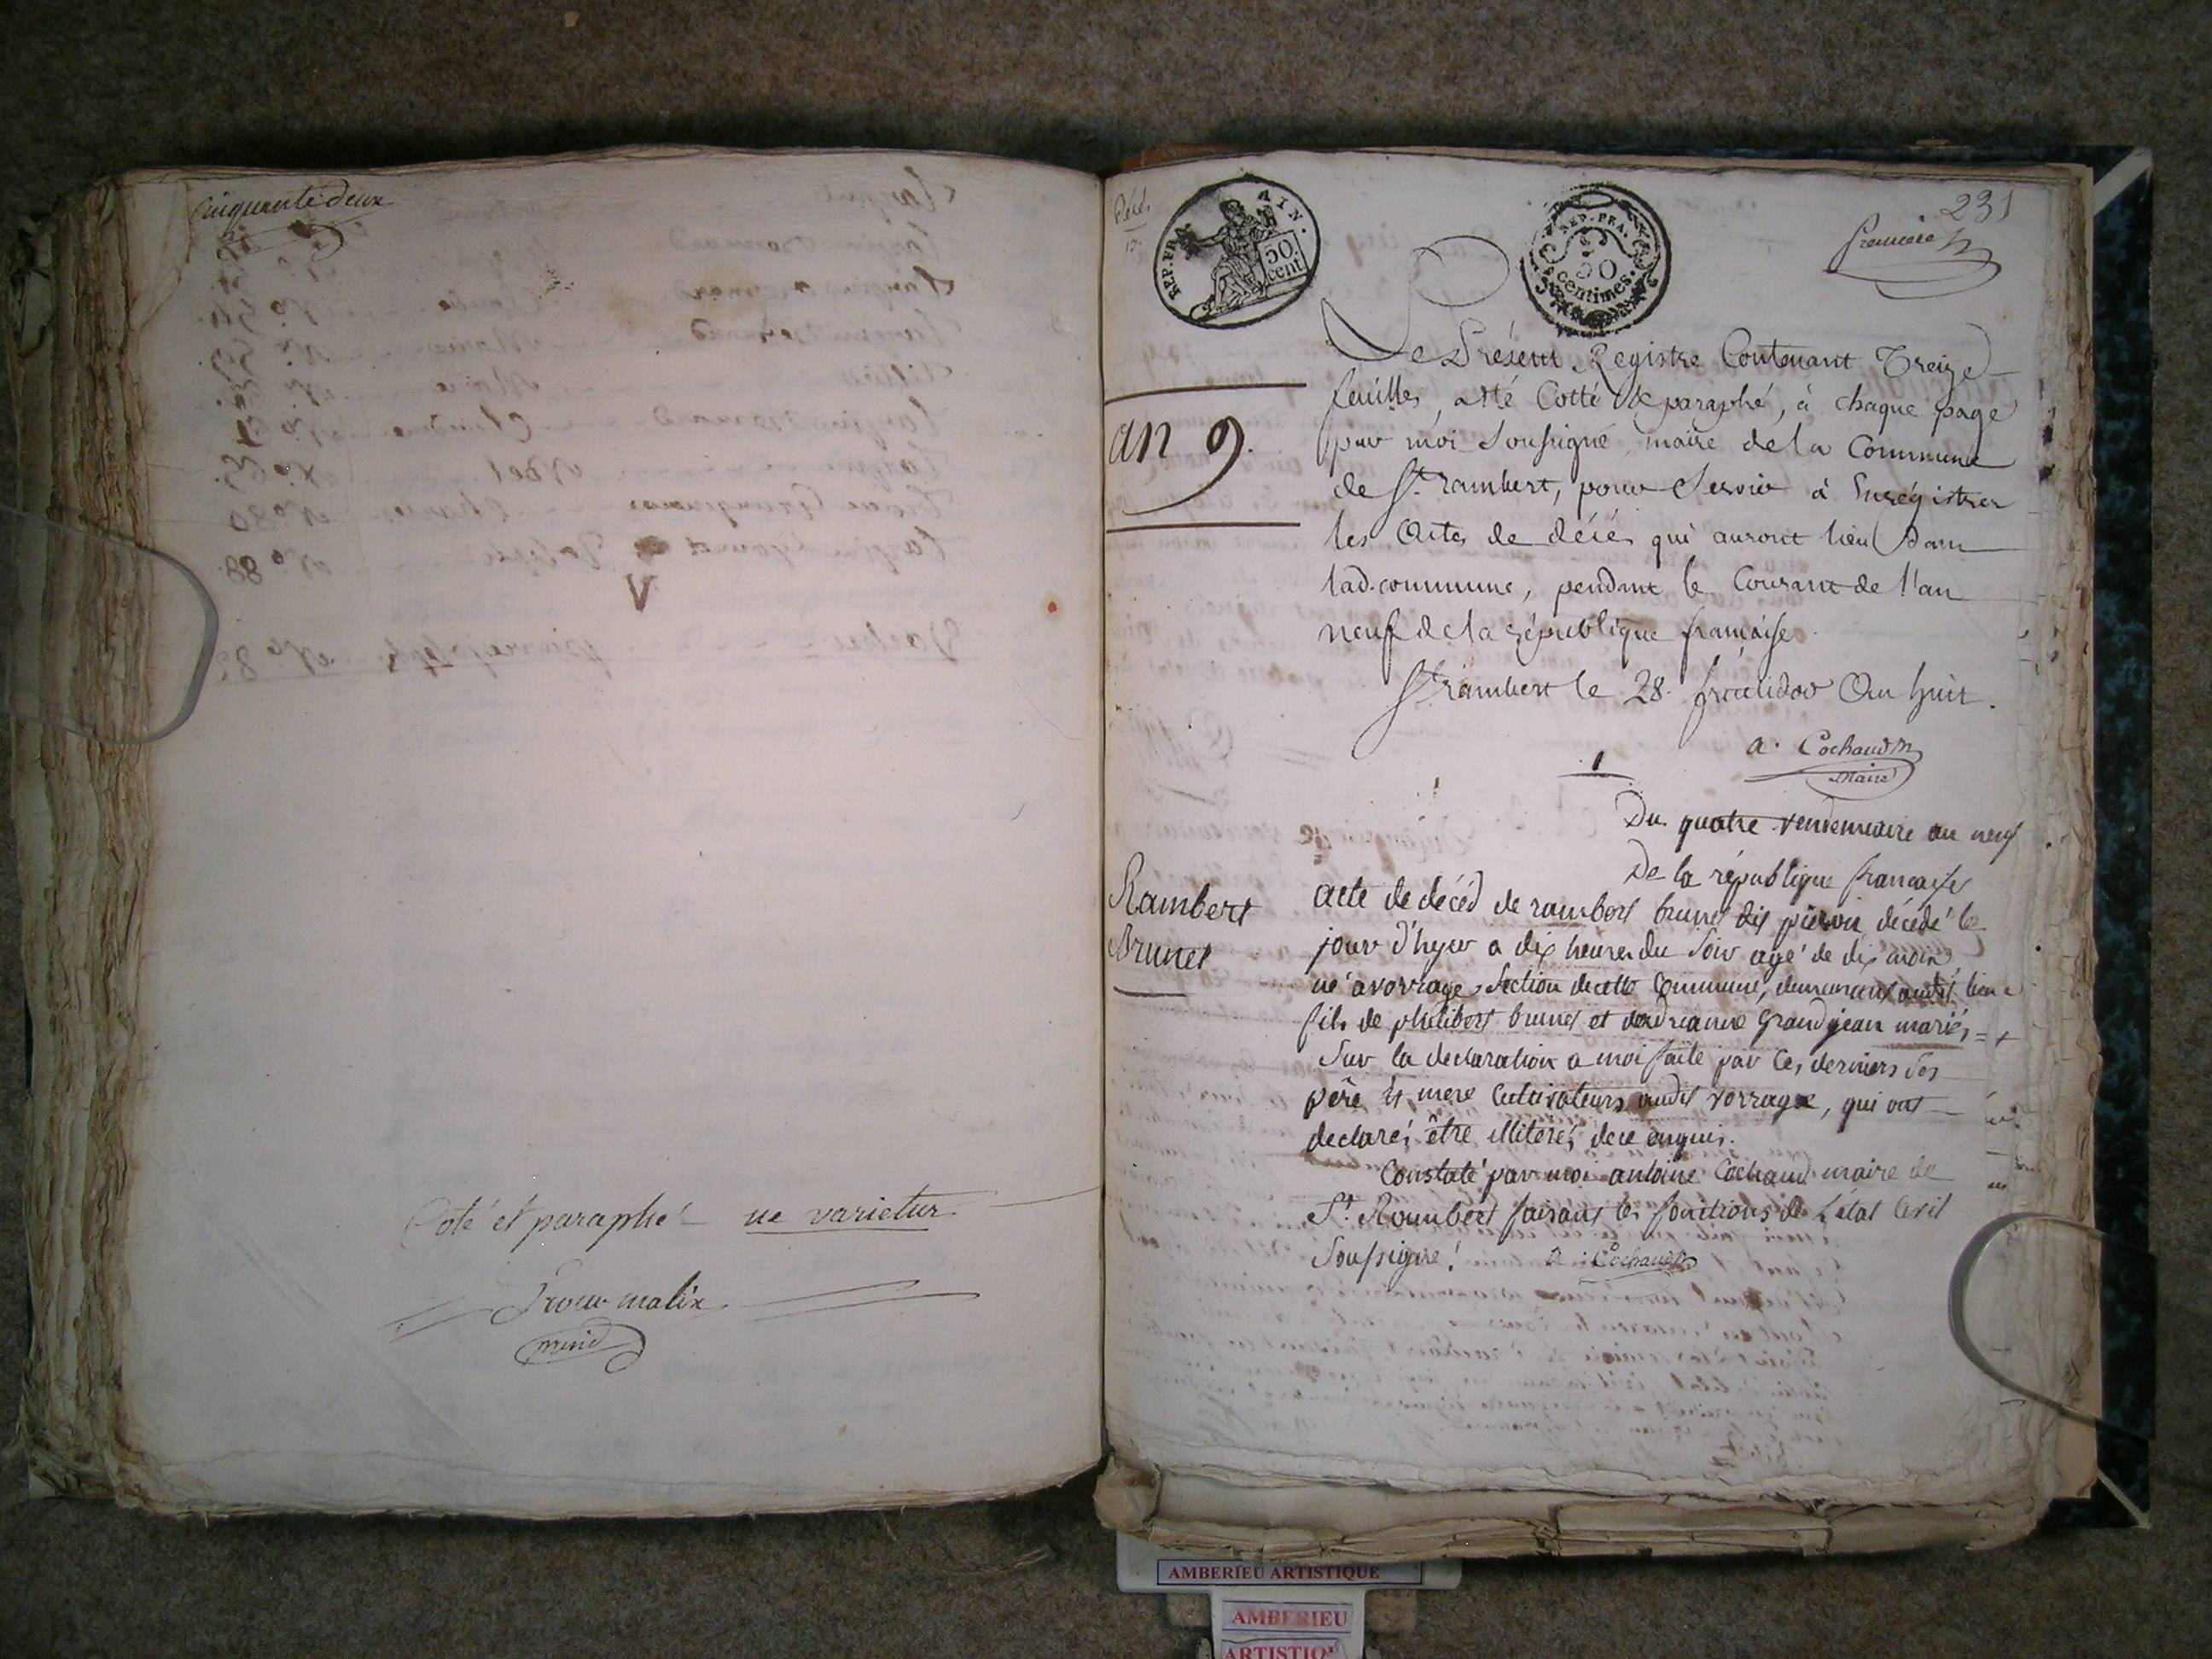 Cinquante deux
Coté et paraphé ne varietur
231
premiere
REP. FRA. AIN.
50 cent
REP. FRA.
50
centimes.
an 9.
Le Présent Registre Contenant Treize
feuilles, a Eté Cotté & paraphé, à chaque page
par moi Soussigné maire de la Commune
de St. rambert, pour Servir à Enrégistrer
les Actes de décès qui auront lieu Dans
lad. commune, pendant le Courant de l'an
neuf de la république française.
St. rambert le 28. fructidor An huit.
a. Cochaud
Maire
1
Du quatre vendemiaire an neuf
De la république francaise
Rambert
Brunet
acte de décéd de rambert brunet dit pieron décédé le
jour d'hyer a dix heures du soir agé de dix mois
né a vorrage Section de cette Commune, demeurant audit lieu
fils de philibert brunet et dandrianne Grandjean mariés
Sur la declaration a moi faite par Ces derniers Ses
père et mere Cultivateurs audit vorrage, qui ont
declarés être illiterés de ce enquis.
Constaté par moi antoine Cochaud maire de
St. Rambert faisant les fonctions de L'état Civil
Soussigné. a. Cochaud
AMBERIEU ARTISTIQUE
AMBERIEU
ARTISTIQUE